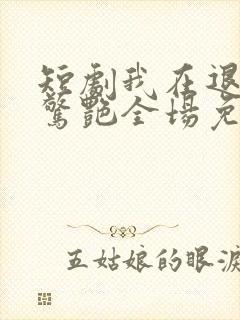 短剧我在退
驚艷全場免
五姑娘的眼淚